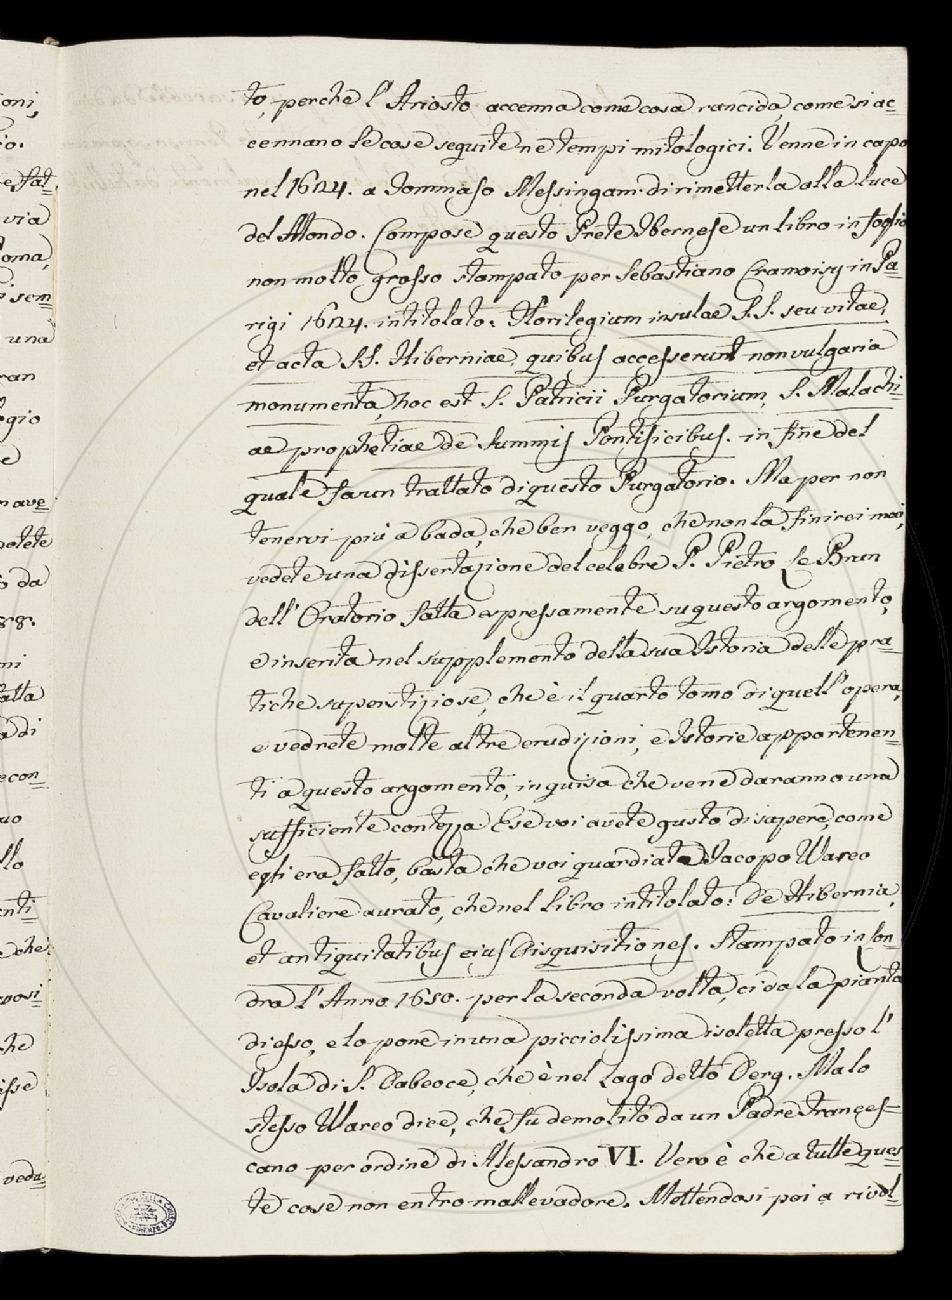 to, perche l'Ariosto accenna come cosa rancida, come si ac=
cennano le cose seguite ne tempi mitologici. Venne in capo
nel 1624. a Tommaso Messingam. di rimetterla alla luce
del Mondo. Compose questo Prete Ibernese un libro in foglio
non molto grosso stampato per Sebastiano Cramoisy in Pa=
rigi 1624. intitolato. Florilegium insulae S.S. seu vitae,
et acta S.S. Hiberniae, quibus accesserunt non vulgaria
monumenta, hoc est S. Patricii Purgatorium, S. Malachi=
ae prophetiae de Summis Pontificibus. in fine del
quale fa un trattato di questo Purgatorio. Ma per non
tenervi più a bada, che ben veggo, che non la finirei mai,
vedete una dissertazione del celebre P. Pietro Le Brun
dell'Oratorio fatta espressamente su questo argomento,
e inserita nel supplemento della sua Istoria delle pra=
tiche superstiziose, che è il quarto tomo di quell'opera,
e vedrete molte altre erudizioni, e Istorie appartenen=
ti a questo argomento, in guisa che ve ne daranno una
sufficiente contezza E se voi avete gusto di sapere, come
egli era fatto, basta che voi guardiate Jacopo Wareo
Cavaliere aurato, che nel libro intitolato: De Hibernia,
et antiquitatibus ejus Disquisitiones. Stampato in Lon=
dra l'Anno 1650. per la seconda volta, ci da la pianta
di esso, e lo pone in una picciolissima isoletta presso l'
Isola di S. Dabeoce, che è nel Lago detto Derg. Ma lo
stesso Wareo dice, che fu demolito da un Padre Frances=
cano per ordine di Alessandro VI. Vero è che a tutte ques=
te cose non entro mallevadore. Mettendosi poi a rivol=